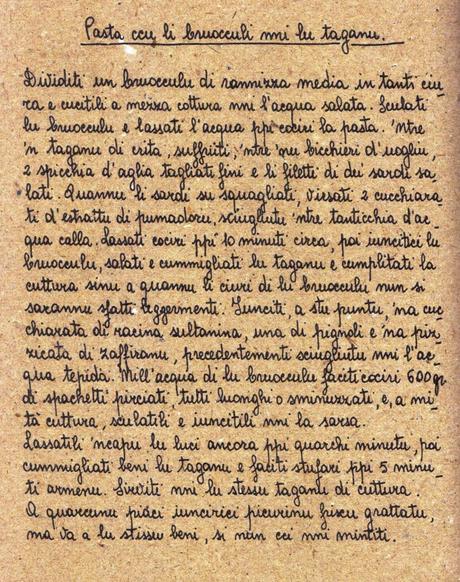 Pasta ccu li bruocculi nni lu taganu.
Dividiti un bruocculu di rannizza media in tanti ciu-
ra e cucitili a mezza cottura nni l'acqua salata. Sculati
lu bruocculu e lassati l'acqua ppi cociri la pasta. 'Ntre
'n taganu di crita, suffriiti, 'ntre 'nu bicchieri d'uogliu,
2 spicchia d'aglia tagliati fini e li filetti di dui sardi sa-
lati. Quannu li sardi su squagliati, virsati 2 cucchiara-
ti d'estrattu di pumadoru, sciugliutu 'ntre tanticchia d'ac-
qua calla. Lassati cociri ppi 10 minuti circa, poi iunciticci lu
bruocculu, salati e cummigliati lu taganu e cumplitati la
cuttura sinu a quannu li ciuri di lu bruocculu nun si
sarannu sfatti leggermenti. Iunciti, a stu puntu, 'na cuc-
chiarata di racina sultanina, una di pignoli e 'na piz-
zicata di zaffiranu, precedentementi sciugliutu nni l'ac-
qua tepida. Nill'acqua di lu bruocculu faciti cociri 600 gr.
di spachetti pirciati, tutti luonghi o sminuzzati, e, a mi-
tà cuttura, sculatili e iuncitili nni la sarsa.
Lassatili 'ncapu lu luci ancora ppi quarchi minutu, poi
cummigliati beni lu taganu e faciti stufari ppi 5 minu-
ti armenu. Sirviti nni lu stessu taganu di cuttura.
A quarcunu piaci iuncirici picurinu friscu grattatu,
ma va a lu stissu beni, si nun cci nni mintiti.